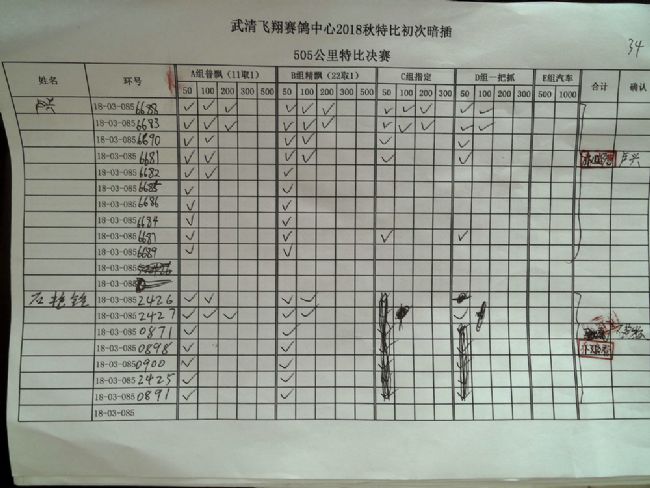 武清飞翔赛鸽中心2018秋特比初次暗插
34
505公里特比决赛
姓名 环号 A组普飘（11取1） B组精飘（22取1） C组指定 D组一把抓 E组汽车 合计 确认
50 100 200 300 500 50 100 200 300 500 50 100 200 300 50 100 200 300 500 1000
18-03-0856688 ✓ ✓ ✓ ✓ ✓ ✓ ✓ ✓ ✓ ✓ ✓
18-03-0856683 ✓ ✓ ✓ ✓ ✓ ✓ ✓ ✓ ✓ ✓ ✓
18-03-0856690 ✓ ✓ ✓ ✓ ✓ ✓
18-03-0856681 ✓ ✓ ✓ ✓ ✓ ✓
18-03-0856682 ✓ ✓ ✓
18-03-0856685 ✓ ✓
18-03-0856686 ✓ ✓
18-03-0856684 ✓ ✓
18-03-085 ✓ ✓ ✓ ✓
18-03-0856689 ✓ ✓
18-03-085
18-03-08
18-03-0852426 ✓ ✓ ✓ ✓
18-03-0852427 ✓ ✓ ✓ ✓ ✓ ✓
18-03-0850871 ✓ ✓
18-03-0850898 ✓ ✓
18-03-0850900 ✓ ✓
18-03-0852425 ✓ ✓
18-03-0850891 ✓ ✓
18-03-085